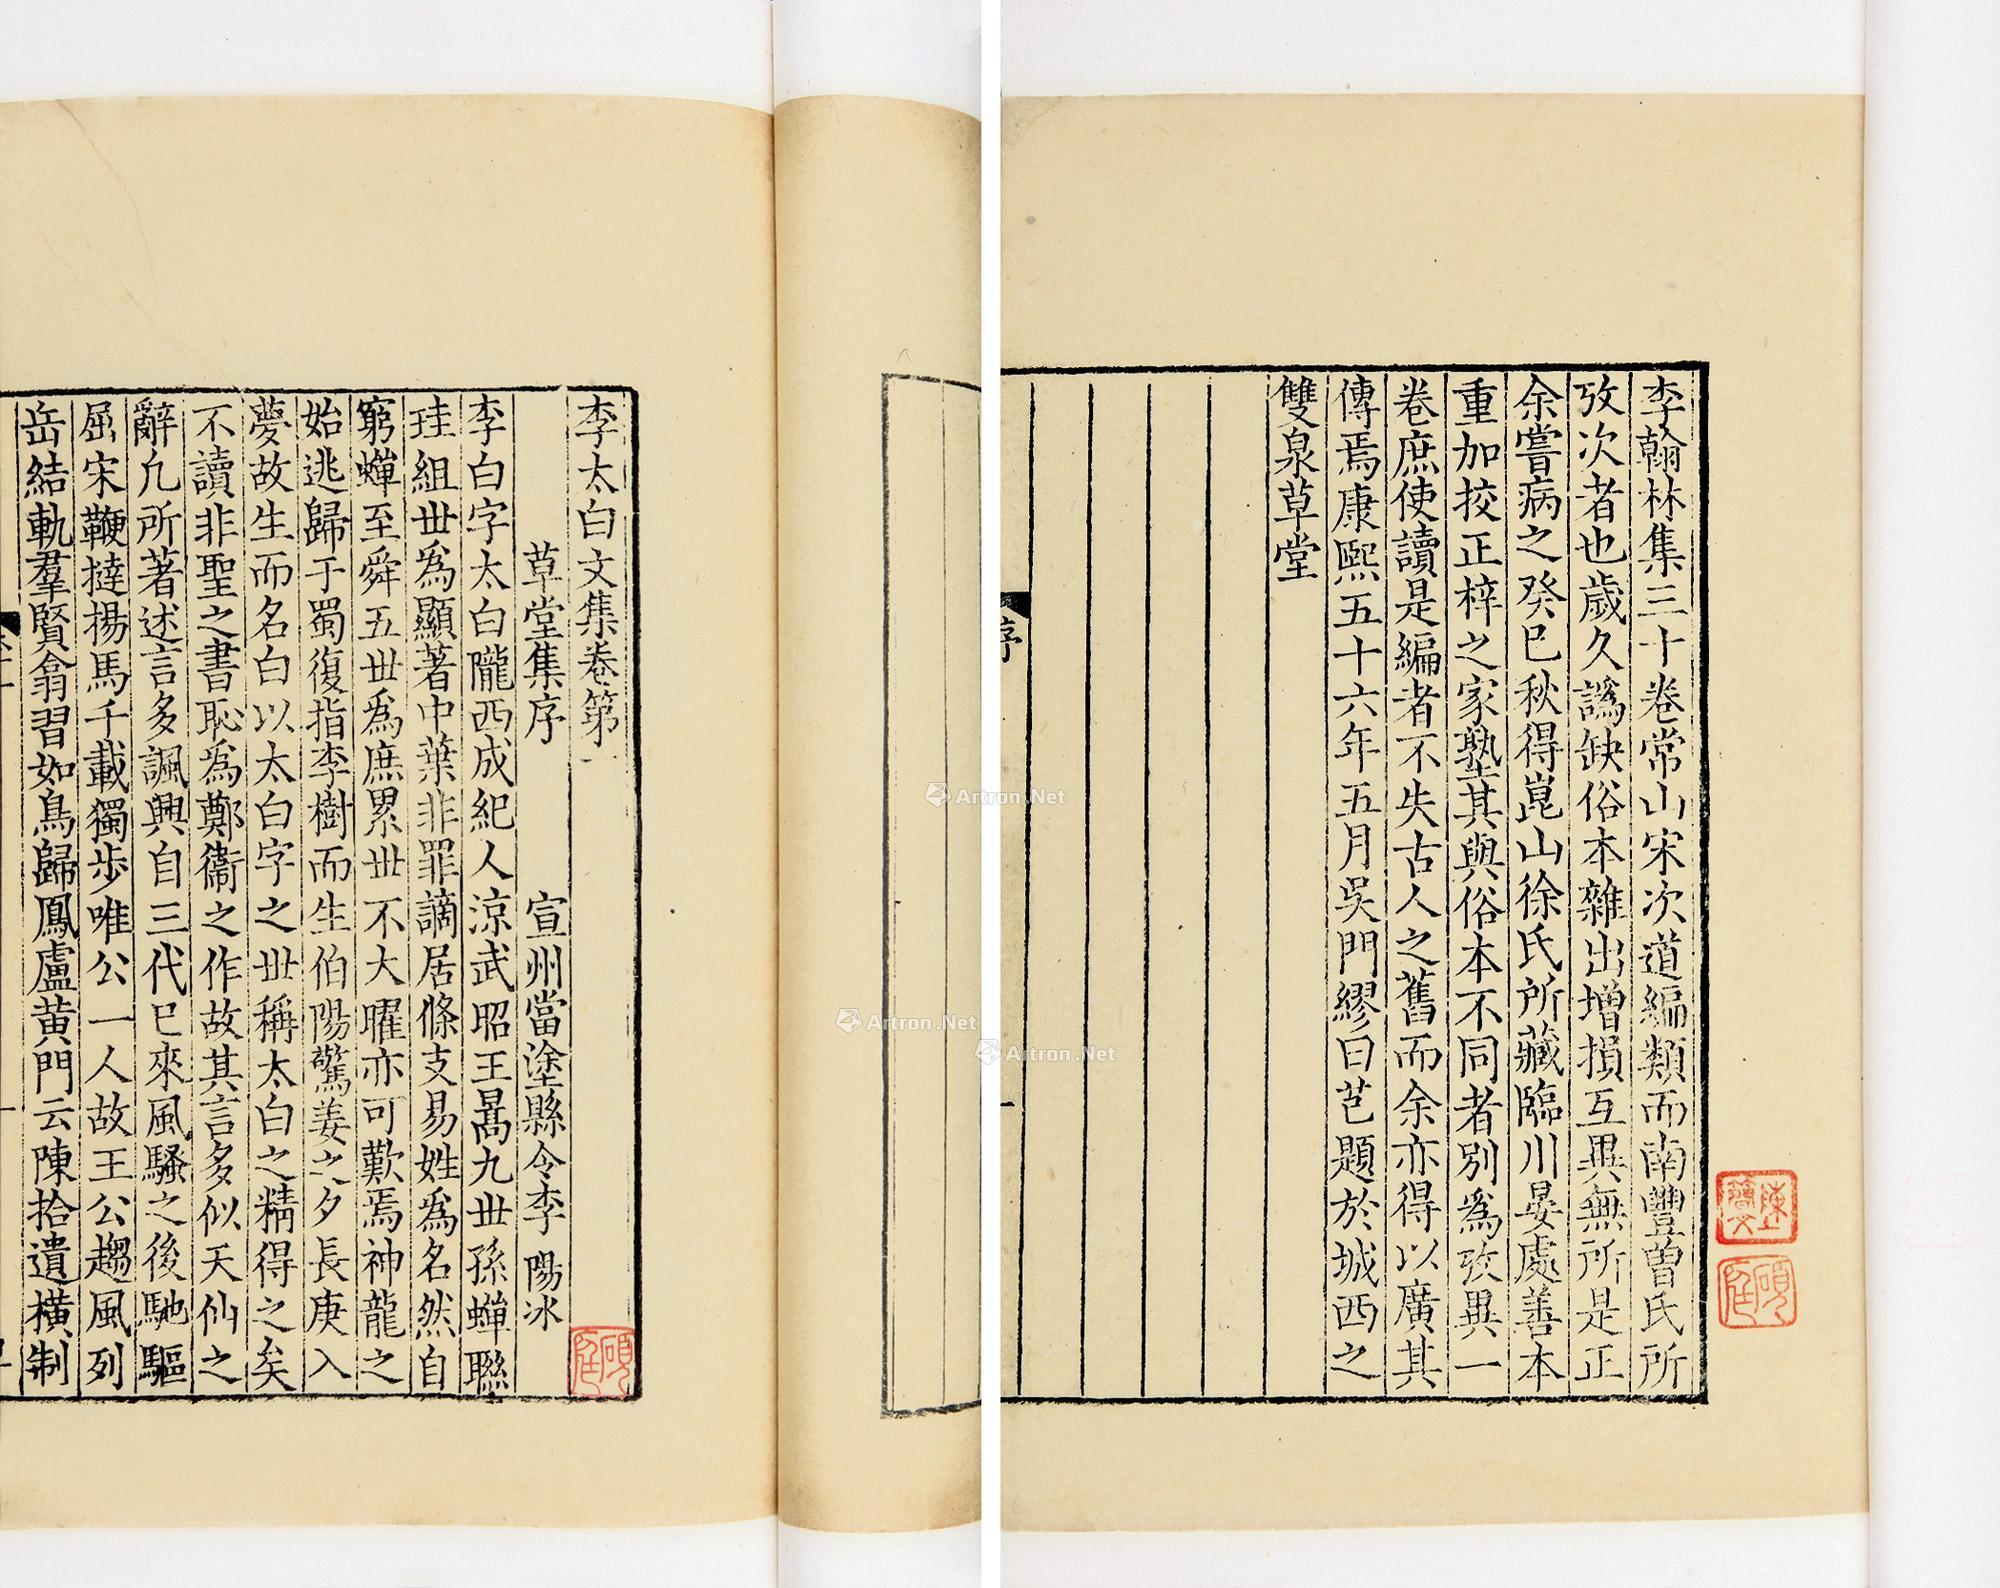 李翰林集三十卷常山宋次道編類而南豐曾氏所
攷次者也歲久譌缺俗本雜出增損互異無所是正
余嘗病之癸巳秋得崑山徐氏所藏臨川晏處善本
重加挍正梓之家塾其與俗本不同者別爲攷異一
卷庶使讀是編者不失古人之舊而余亦得以廣其
傳焉康熙五十六年五月吳門繆曰芑題於城西之
雙泉草堂
序
一
李太白文集卷第一
草堂集序 宣州當塗縣令李陽冰
李白字太白隴西成紀人涼武昭王暠九世孫蟬聯
珪組世爲顯著中葉非罪謫居條支易姓爲名然自
窮蟬至舜五世爲庶累世不大曜亦可歎焉神龍之
始逃歸于蜀復指李樹而生伯陽驚姜之夕長庚入
夢故生而名白以太白字之世稱太白之精得之矣
不讀非聖之書恥爲鄭衞之作故其言多似天仙之
辭凢所著述言多諷興自三代已來風騷之後馳驅
屈宋鞭撻揚馬千載獨步唯公一人故王公趨風列
岳結軌羣賢翕習如鳥歸鳳盧黄門云陳拾遺橫制
Artron.Net
Artron.Net
Artron.Net